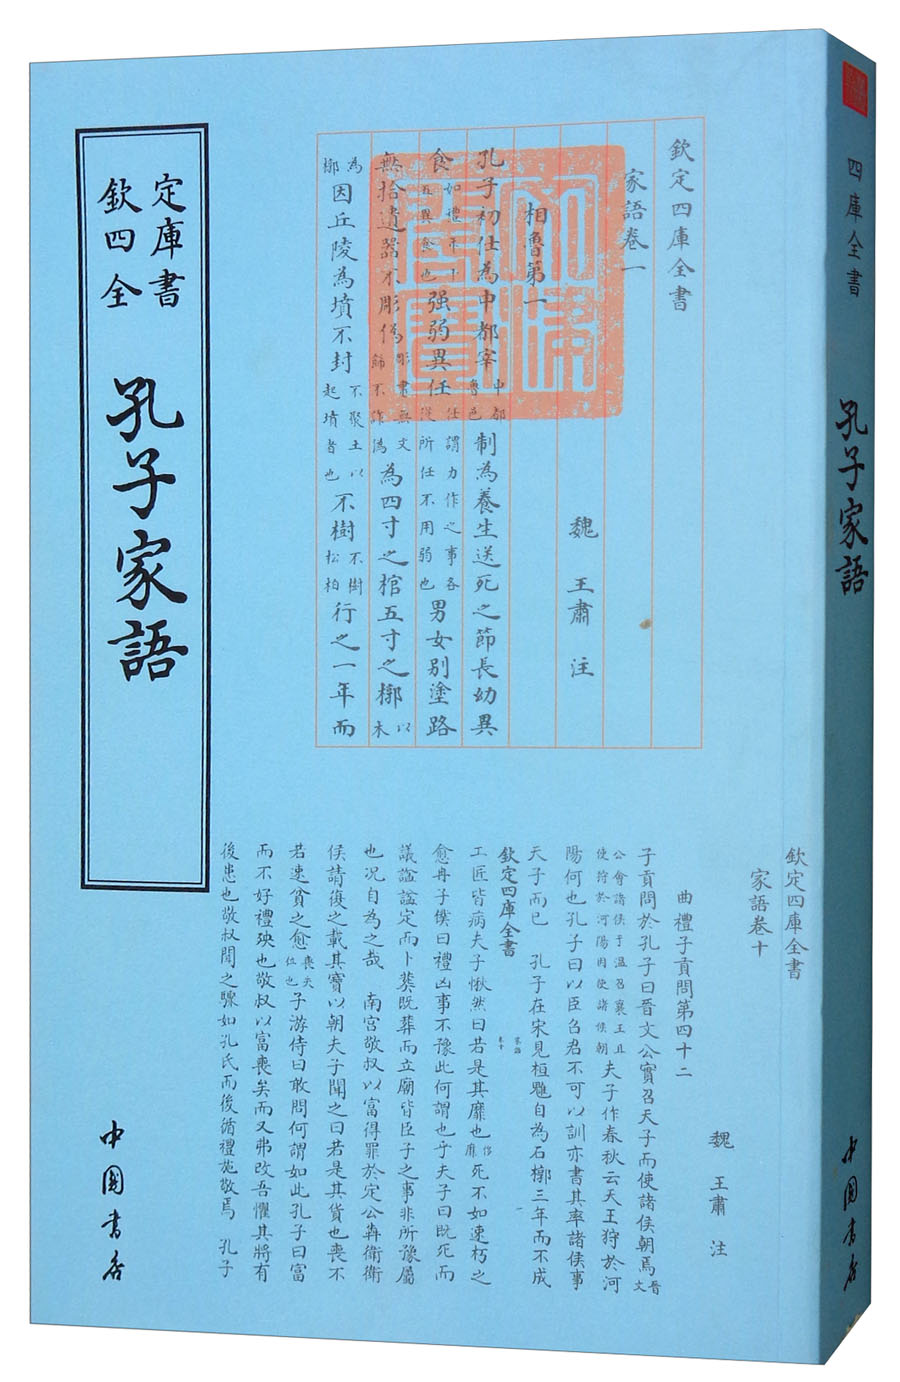 欽定
四庫
全書
孔子家語
中國書店
欽定四庫全書
家語卷一
相魯第一
魏 王肅 注
孔子初仕為中都宰中都魯邑制為養生送死之節長幼異
食如禮年十五異食也強弱異任任謂力作之事各從所任不用弱也男女別塗路
無拾遺器不彫偽彫畫無文飾不詐偽為四寸之棺五寸之槨以木
為槨因丘陵為墳不封不聚土以起墳者也不樹不樹松柏行之一年而
欽定四庫全書
家語卷十
魏 王肅 注
曲禮子貢問第四十二
子貢問於孔子曰晉文公實召天子而使諸侯朝焉晉文
公會諸侯于溫召襄王且使狩於河陽因使諸侯朝夫子作春秋云天王狩於河
陽何也孔子曰以臣召君不可以訓亦書其率諸侯事
天子而已 孔子在宋見桓魋自為石槨三年而不成
欽定四庫全書 家語卷十
工匠皆病夫子愀然曰若是其靡也侈靡死不如速朽之
愈冉子僕曰禮凶事不豫此何謂也乎夫子曰既死而
議諡諡定而卜葬既葬而立廟皆臣子之事非所豫屬
也况自為之哉 南宫敬叔以富得罪於定公奔衛衛
侯請復之載其寶以朝夫子聞之曰若是其貨也喪不
若速貧之愈喪失位也子游侍曰敢問何謂如此孔子曰富
而不好禮殃也敬叔以富喪矣而又弗改吾懼其將有
後患也敬叔聞之驟如孔氏而後循禮施散焉 孔子
四庫全書
孔子家語
中國書店